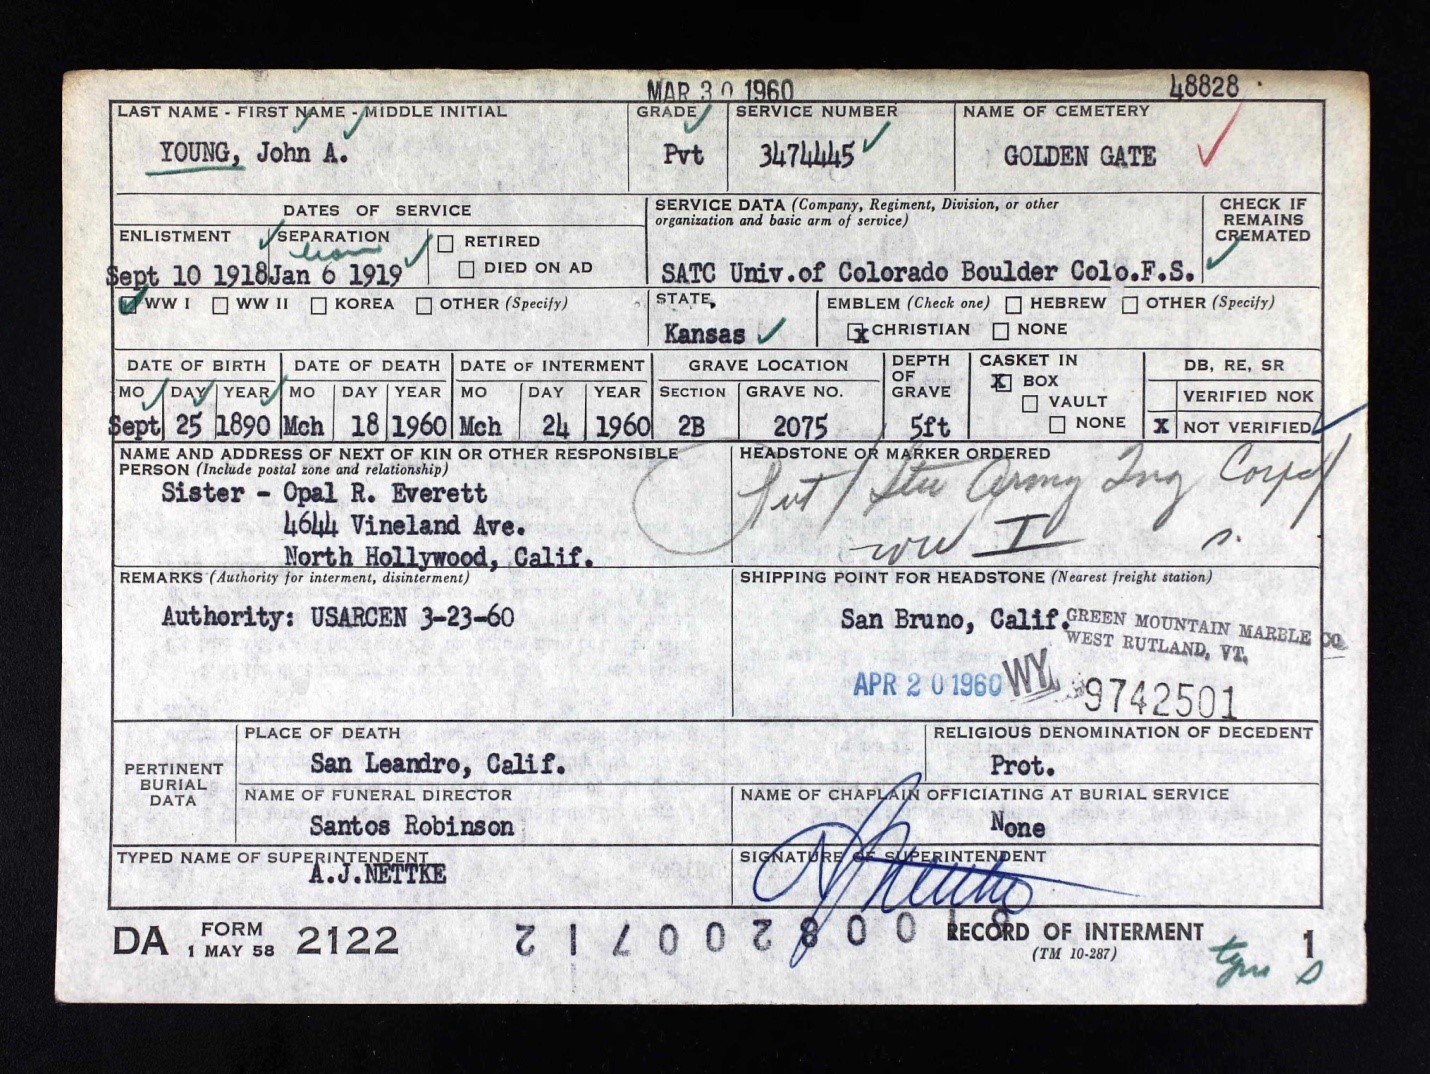 MAR 30 1960
48828
LAST NAME - FIRST NAME - MIDDLE INITIAL
GRADE
SERVICE NUMBER
NAME OF CEMETERY
YOUNG, John A.
Pvt
3474445
GOLDEN GATE
DATES OF SERVICE
SERVICE DATA (Company, Regiment, Division, or other
organization and basic arm of service)
CHECK IF
REMAINS
CREMATED
ENLISTMENT
SEPARATION
RETIRED
DIED ON AD
Sept 10 1918
Jan 6 1919
SATC Univ.of Colorado Boulder Colo.F.S.
WW I
WW II
KOREA
OTHER (Specify)
STATE
Kansas
EMBLEM (Check one)
HEBREW
OTHER (Specify)
x CHRISTIAN
NONE
DATE OF BIRTH
DATE OF DEATH
DATE OF INTERMENT
GRAVE LOCATION
DEPTH
OF
GRAVE
CASKET IN
DB, RE, SR
MO DAY YEAR
MO DAY YEAR
MO DAY YEAR
SECTION
GRAVE NO.
X BOX
VAULT
NONE
VERIFIED NOK
X NOT VERIFIED
Sept 25 1890
Mch 18 1960
Mch 24 1960
2B
2075
5ft
NAME AND ADDRESS OF NEXT OF KIN OR OTHER RESPONSIBLE
PERSON (Include postal zone and relationship)
Sister - Opal R. Everett
4644 Vineland Ave.
North Hollywood, Calif.
HEADSTONE OR MARKER ORDERED
Pvt / Stu Army Tng Corps /
WW I
REMARKS (Authority for interment, disinterment)
Authority: USARCEN 3-23-60
SHIPPING POINT FOR HEADSTONE (Nearest freight station)
San Bruno, Calif.
GREEN MOUNTAIN MARBLE CO
WEST RUTLAND, VT.
APR 20 1960
WY.
9742501
PERTINENT
BURIAL
DATA
PLACE OF DEATH
San Leandro, Calif.
RELIGIOUS DENOMINATION OF DECEDENT
Prot.
NAME OF FUNERAL DIRECTOR
Santos Robinson
NAME OF CHAPLAIN OFFICIATING AT BURIAL SERVICE
None
TYPED NAME OF SUPERINTENDENT
A.J.NETTKE
SIGNATURE OF SUPERINTENDENT
DA FORM
1 MAY 58
2122
RECORD OF INTERMENT
(TM 10-287)
1